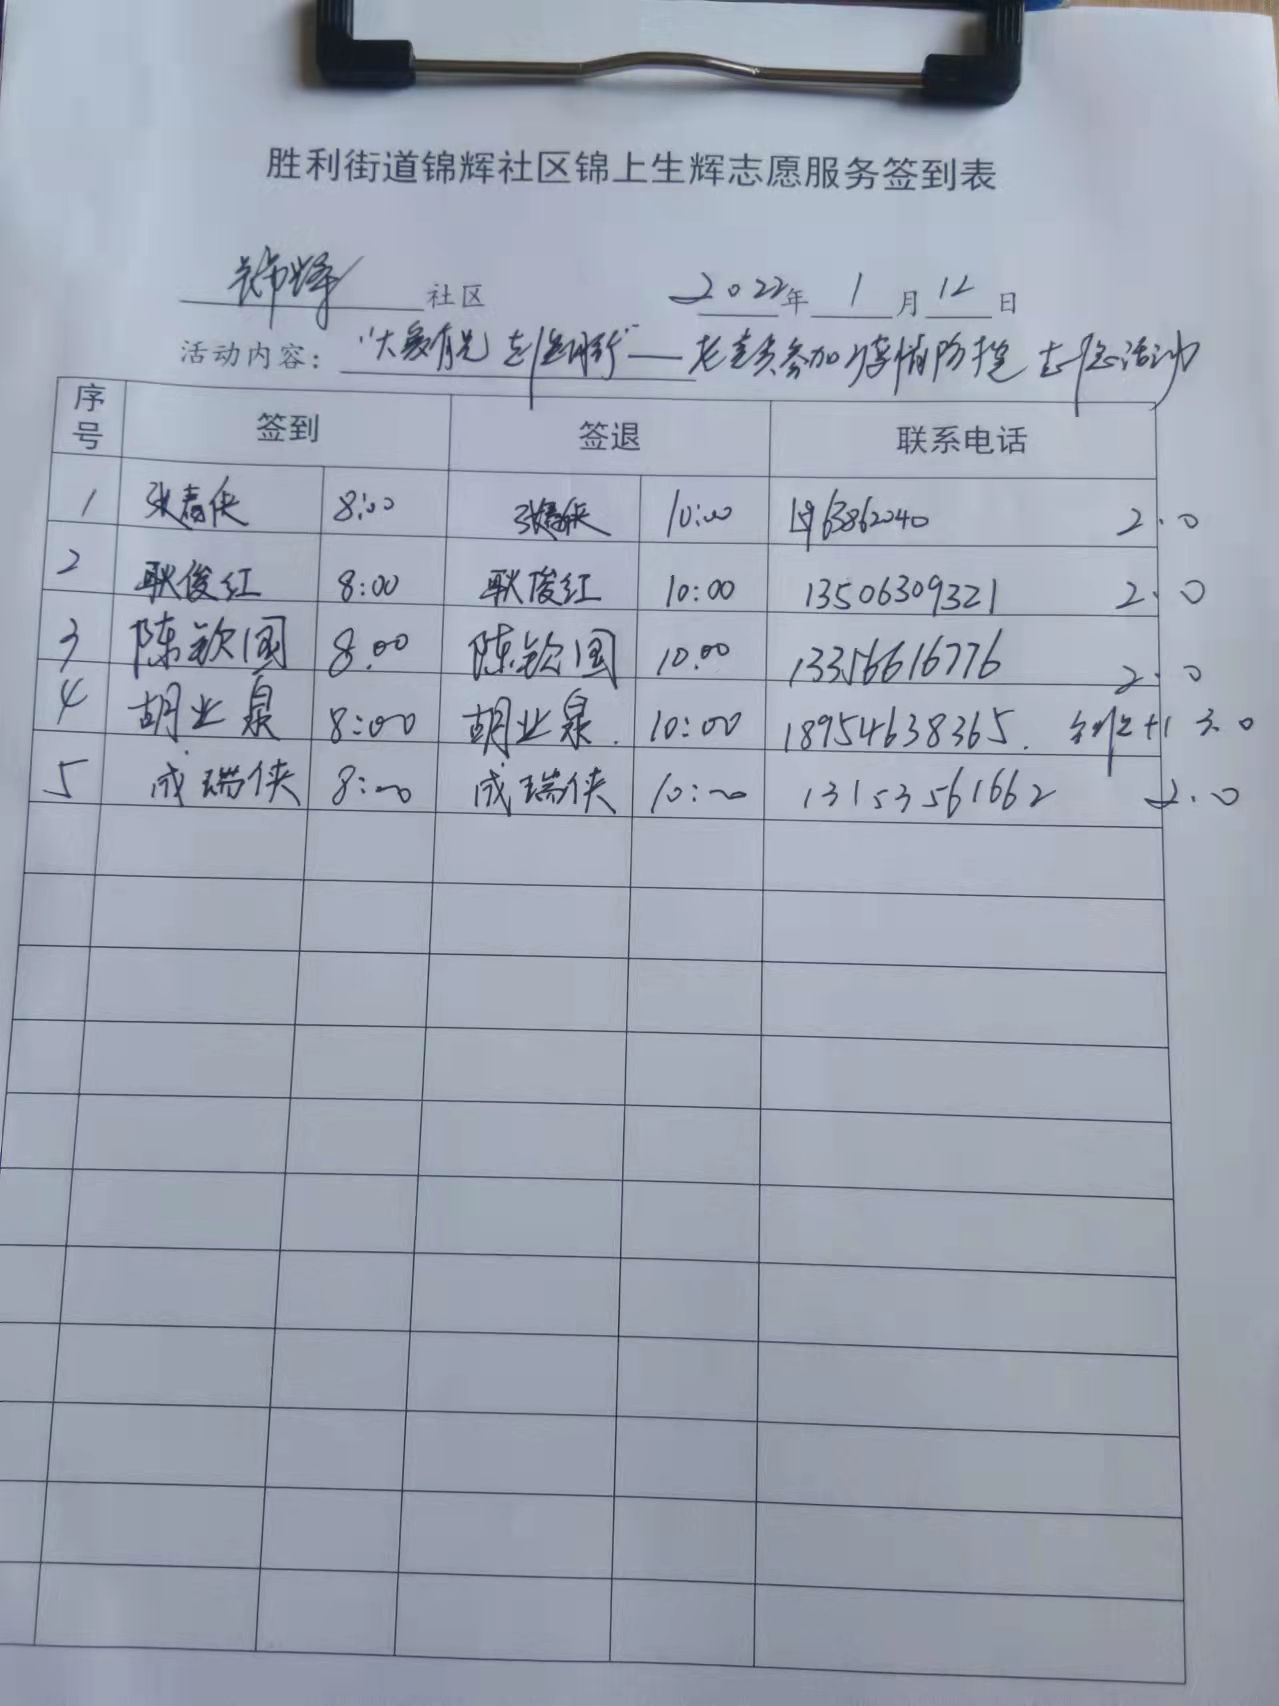 胜利街道锦辉社区锦上生辉志愿服务签到表
锦辉 社区 2022年 1 月 12 日
活动内容： 老党员参加疫情防控志愿活动
序号 签到 签退 联系电话
1 张春侠 8:00 张春侠 10:00 63862040 2.0
2 耿俊红 8:00 耿俊红 10:00 13506309321 2.0
3 陈钦国 8.00 陈钦国 10.00 13356616776 2.0
4 胡业泉 8:00 胡业泉. 10:00 18954638365. +1 3.0
5 成瑞侠 8:00 成瑞侠 10:00 13153561662 2.0